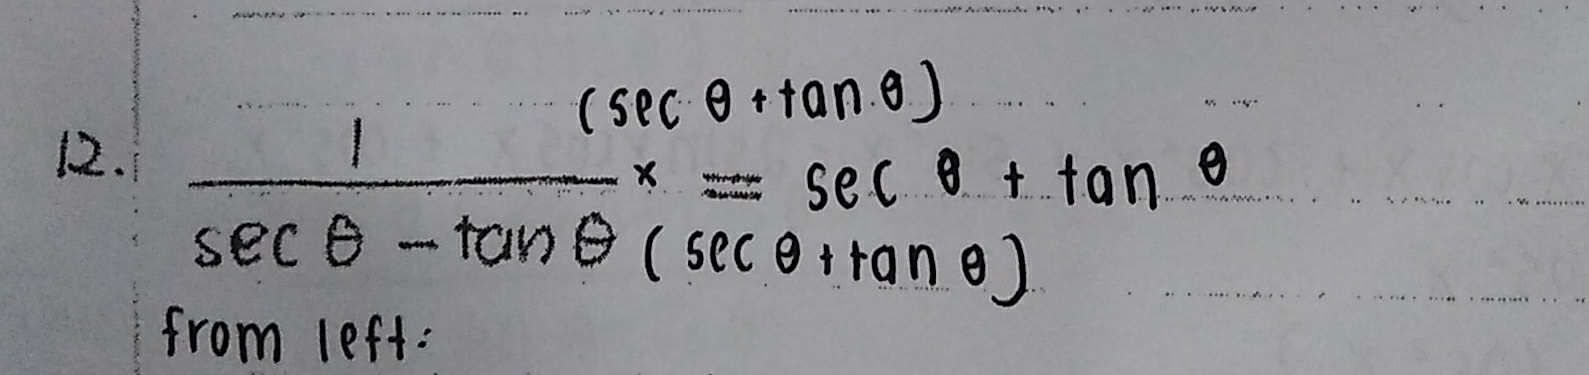 (sec θ + tan θ)
12. 1 / sec θ - tan θ × = sec θ + tan θ
(sec θ + tan θ)
from left: